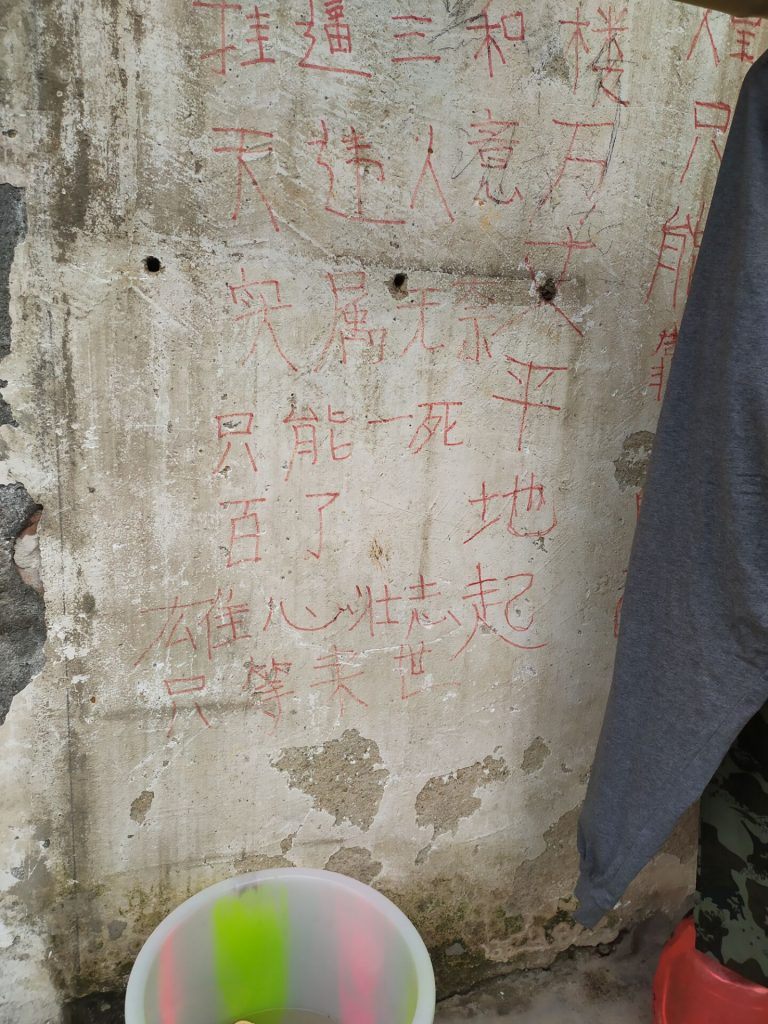 挂逼三和
天违人意
实属无奈
只能一死
百了
雄心壮志
只等来世
楼万丈平地起
只能靠